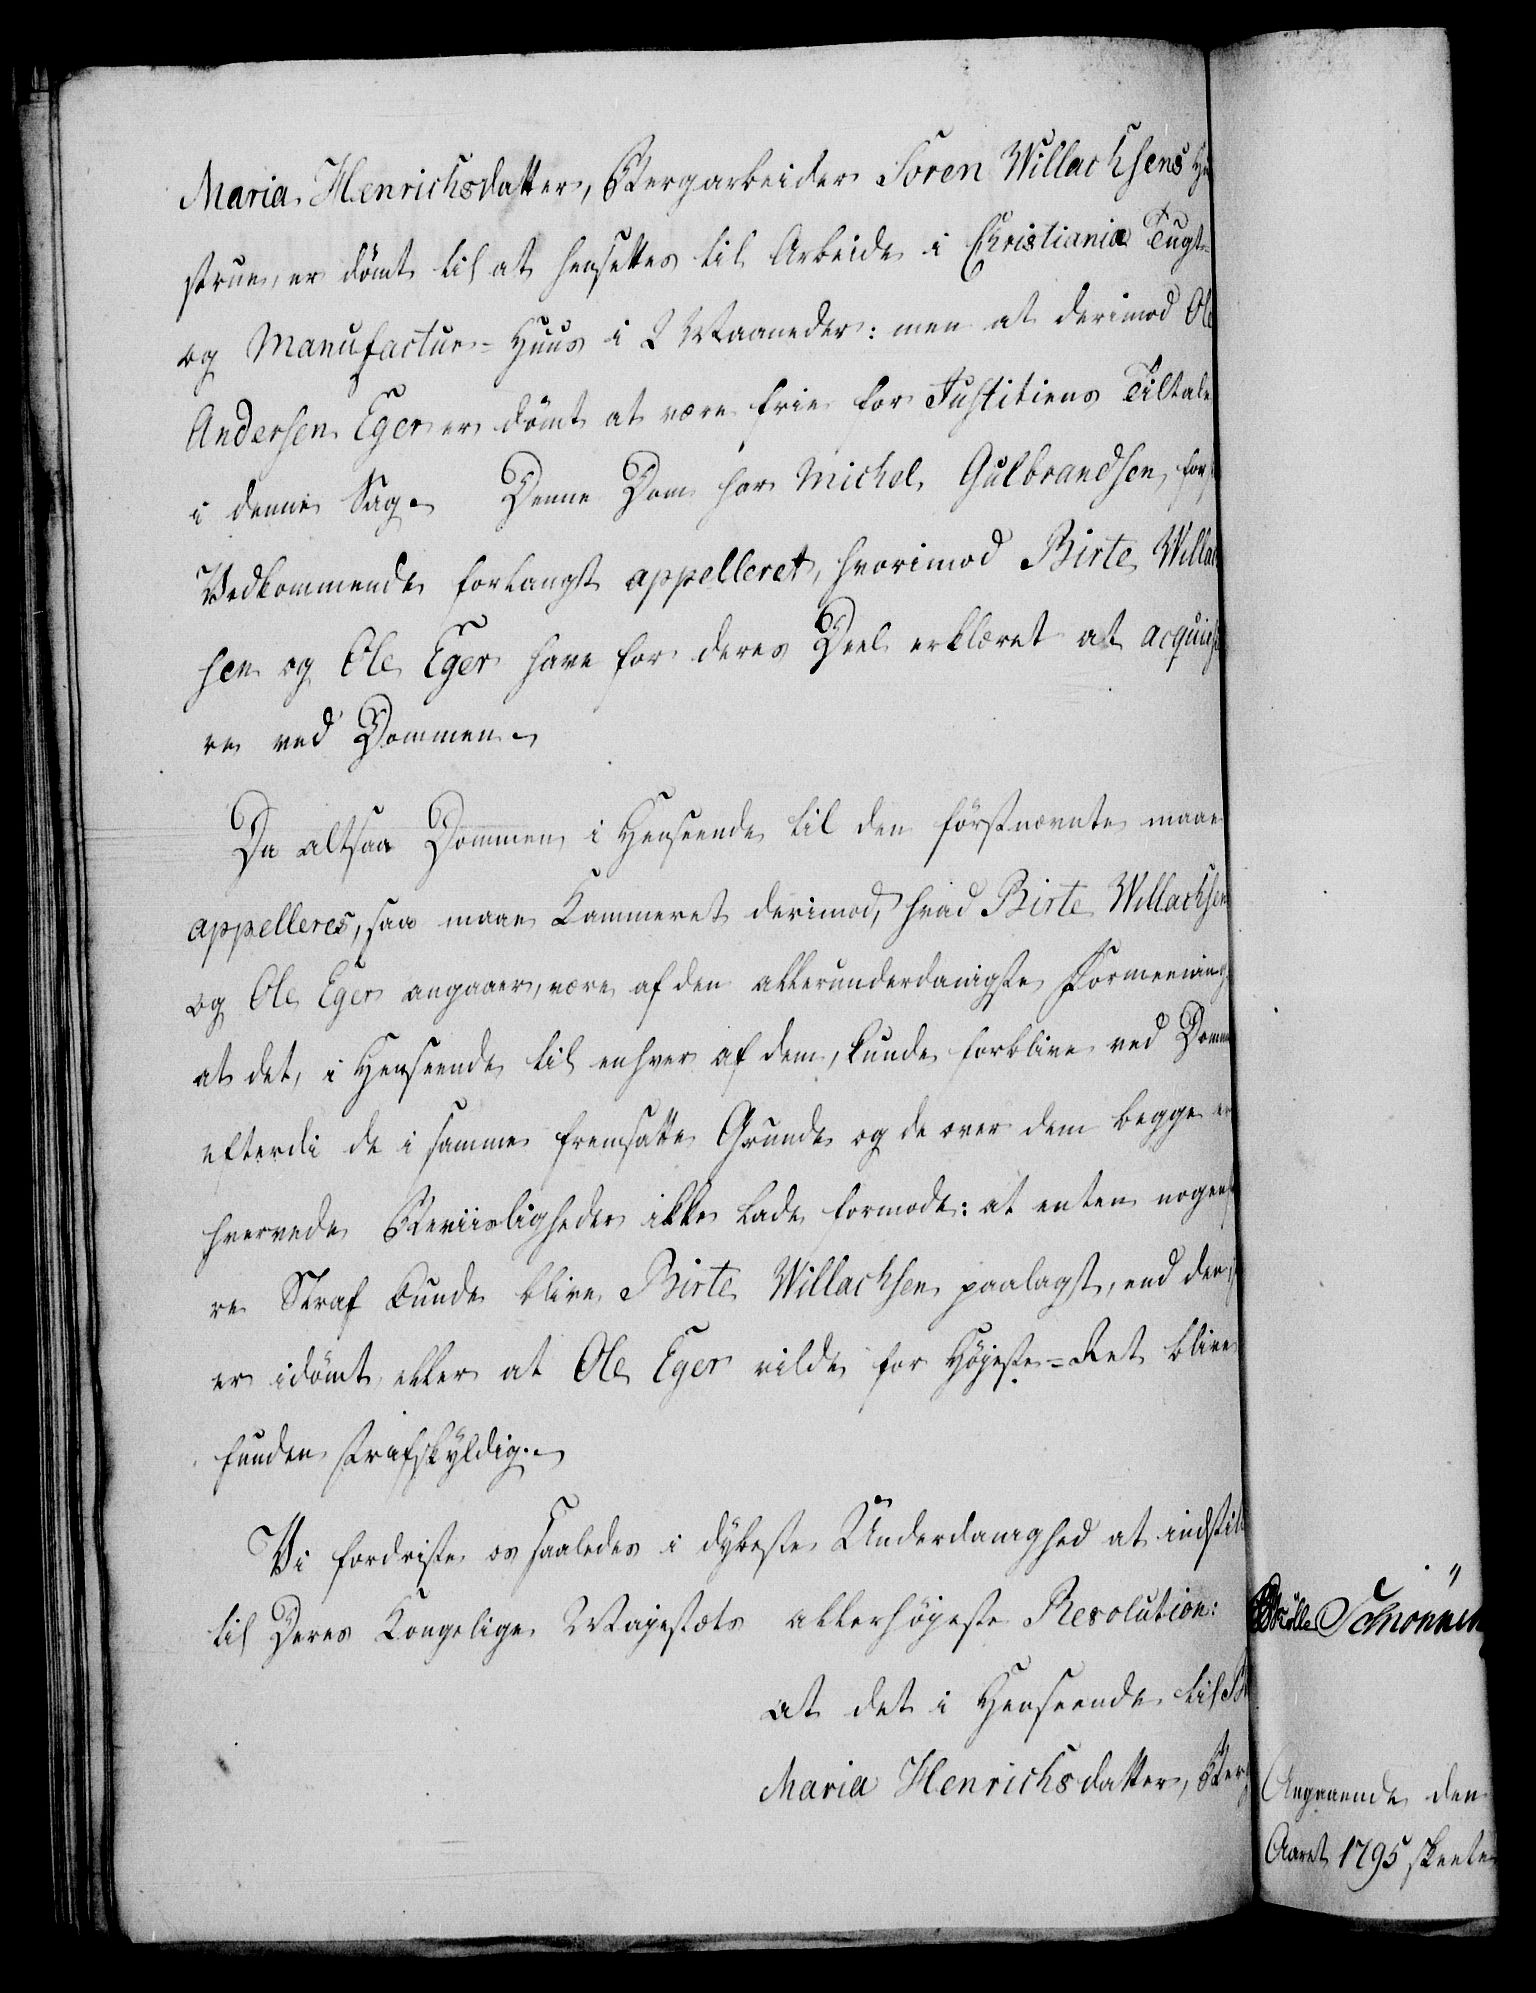 Maria Henrichsdatter, Bergarbeider Søren Willachsens Hu
strue, er dömt til at hensettes til Arbeide i Christiania Tugt-
og Manufactur-Huus i 2 Maaneder: men at derimod Ole
Andersen Eger er dömt at være frie for Justitiens Tiltale
i denne Sag. Denne Dom har Michel Gulbrandsen for
Vedkommende forlangt appelleret, hvorimod Birte Willach
sen og Ole Eger have for deres Deel erklæret at acquiesce
re ved Dommen.
Da altsaa Dommen i Henseende til den förstnævnte maae
appelleres, saa maae Kammeret derimod, hvad Birte Willachsen
og Ole Eger angaaer, være af den allerunderdanigste Formeening,
at det, i Henseende til enhver af dem, kunde forblive ved Domme
efterdi de i samme fremsatte Grunde og de over dem begge er
hvervede Beviisligheder ikke lade formode: at enten nogen
re Straf kunde blive Birte Willachsen paalagt, end den
er idömt, eller at Ole Eger vilde for Höjeste-Ret blive
funden strafskyldig.
Vi fordriste os saaledes i dybeste Underdanighed at indstille
til Deres Kongelige Majestæts allerhöjeste Resolution:
at det i Henseende til
Maria Henrichsdatter, Berg
Angaaende den
Aaret 1795 skeete